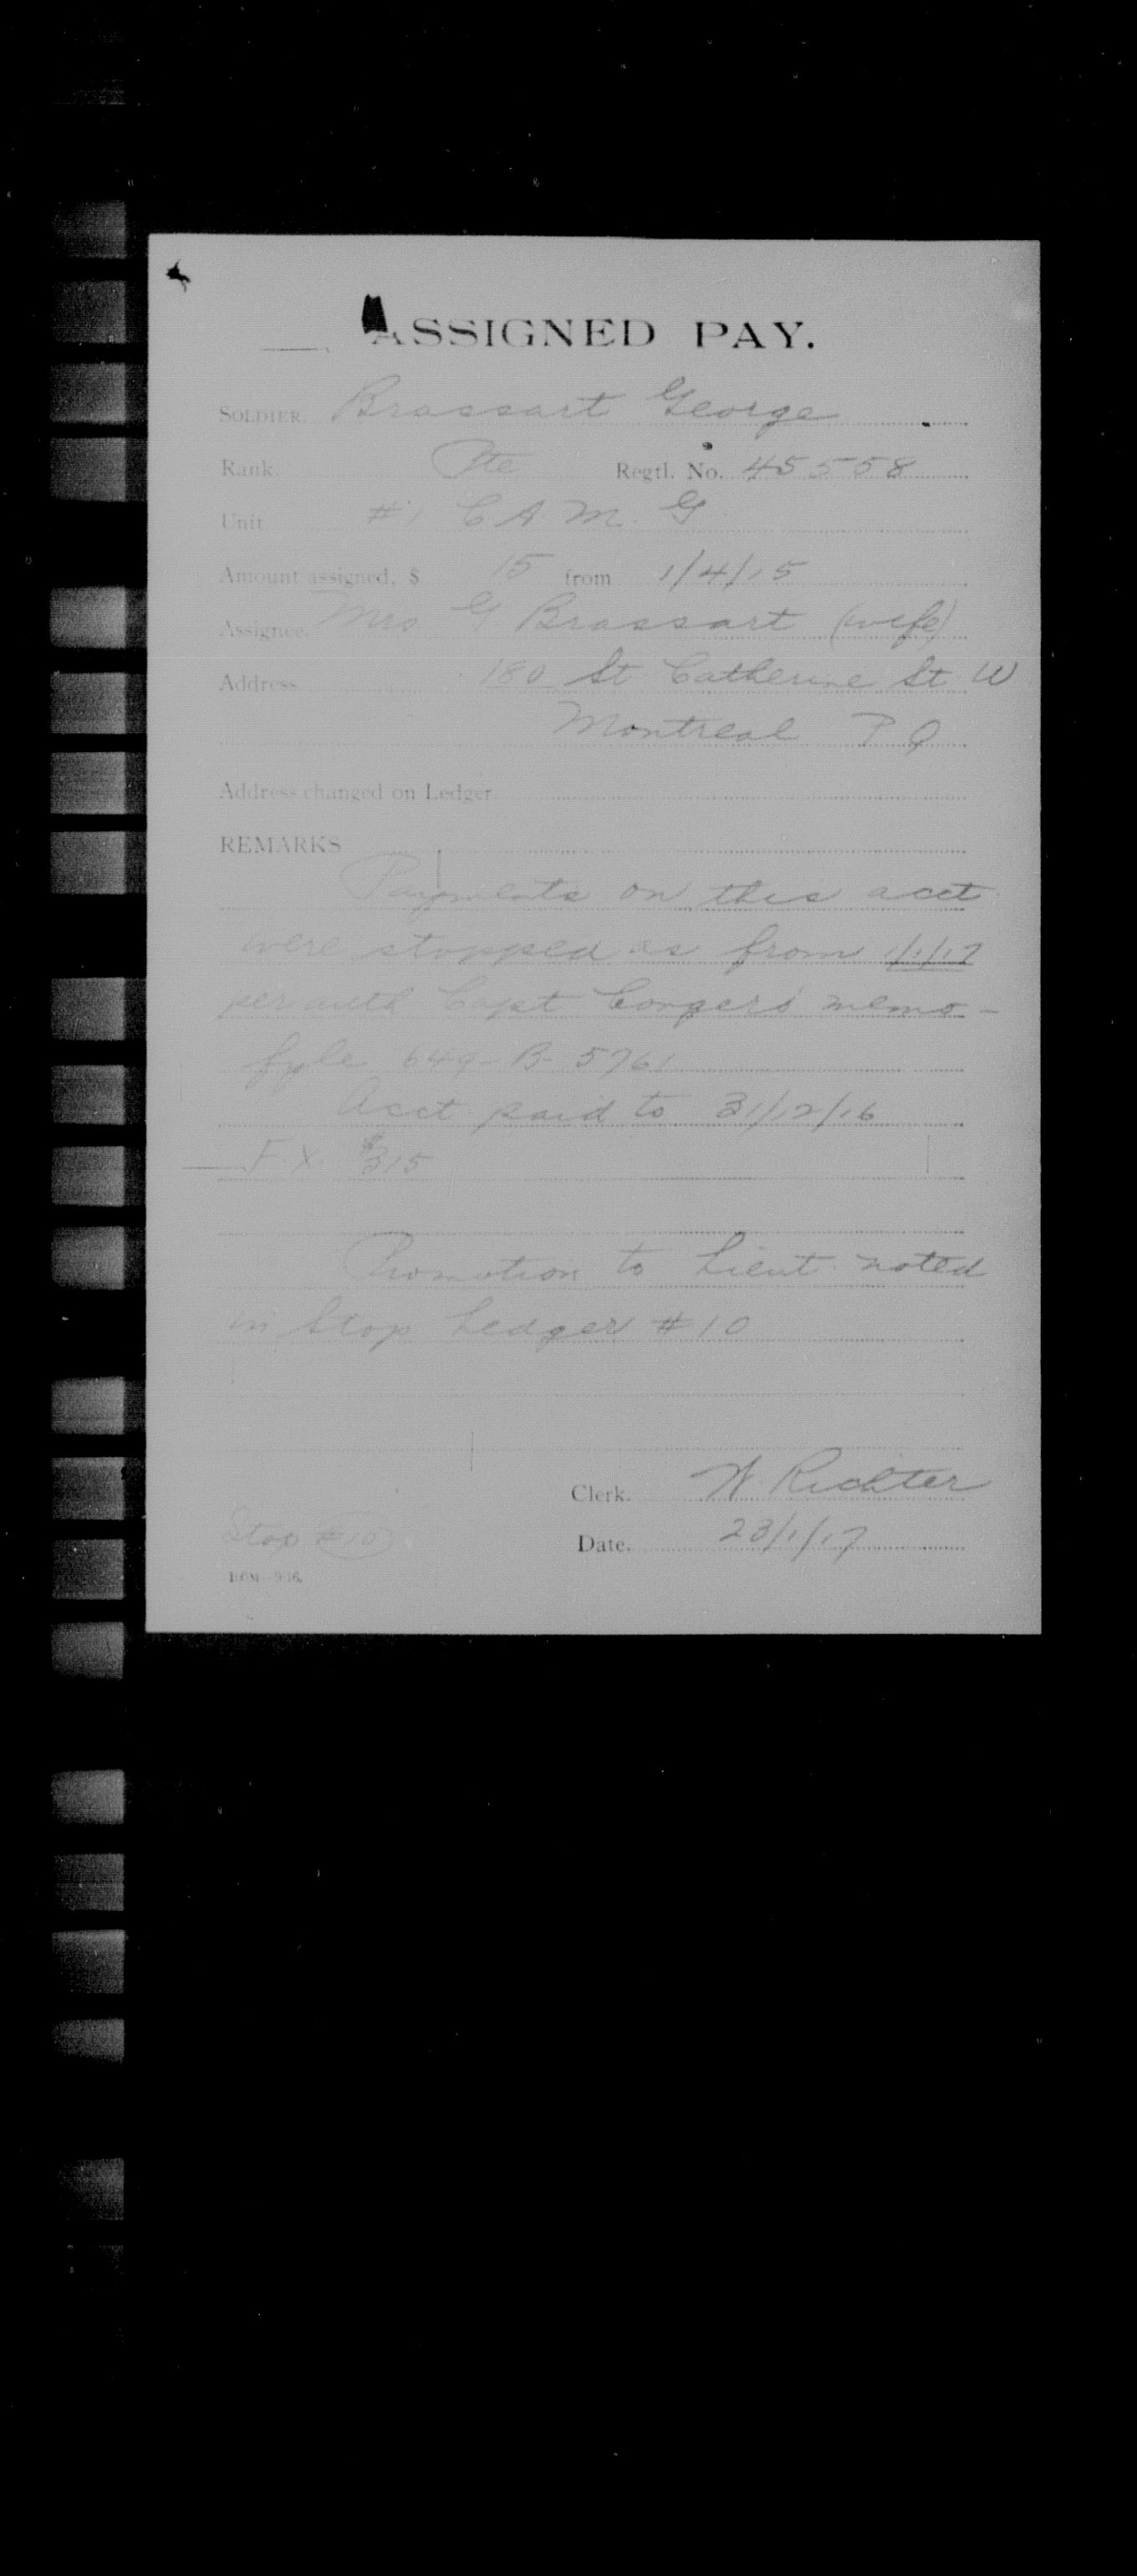 ASSIGNED PAY.
SOLDIER. Brassart George
Rank. Pte Regtl. No. 45558
Unit. #1 C A M. G
Amount assigned, $ 15 from 1/4/15
Assignee. Mrs G Brassart (wife)
Address 180 St Catherine St W
Montreal P Q
Address changed on Ledger.
REMARKS
Payments on this acct
were stopped as from 1/1/17
per auth Capt Congers memo -
fyle 649-B-5761
Acct paid to 31/12/16
F. X. $315
Promotion to Lieut noted
in Stop Ledger #10
Clerk. W. Richter
Stop #10
Date. 23/1/17